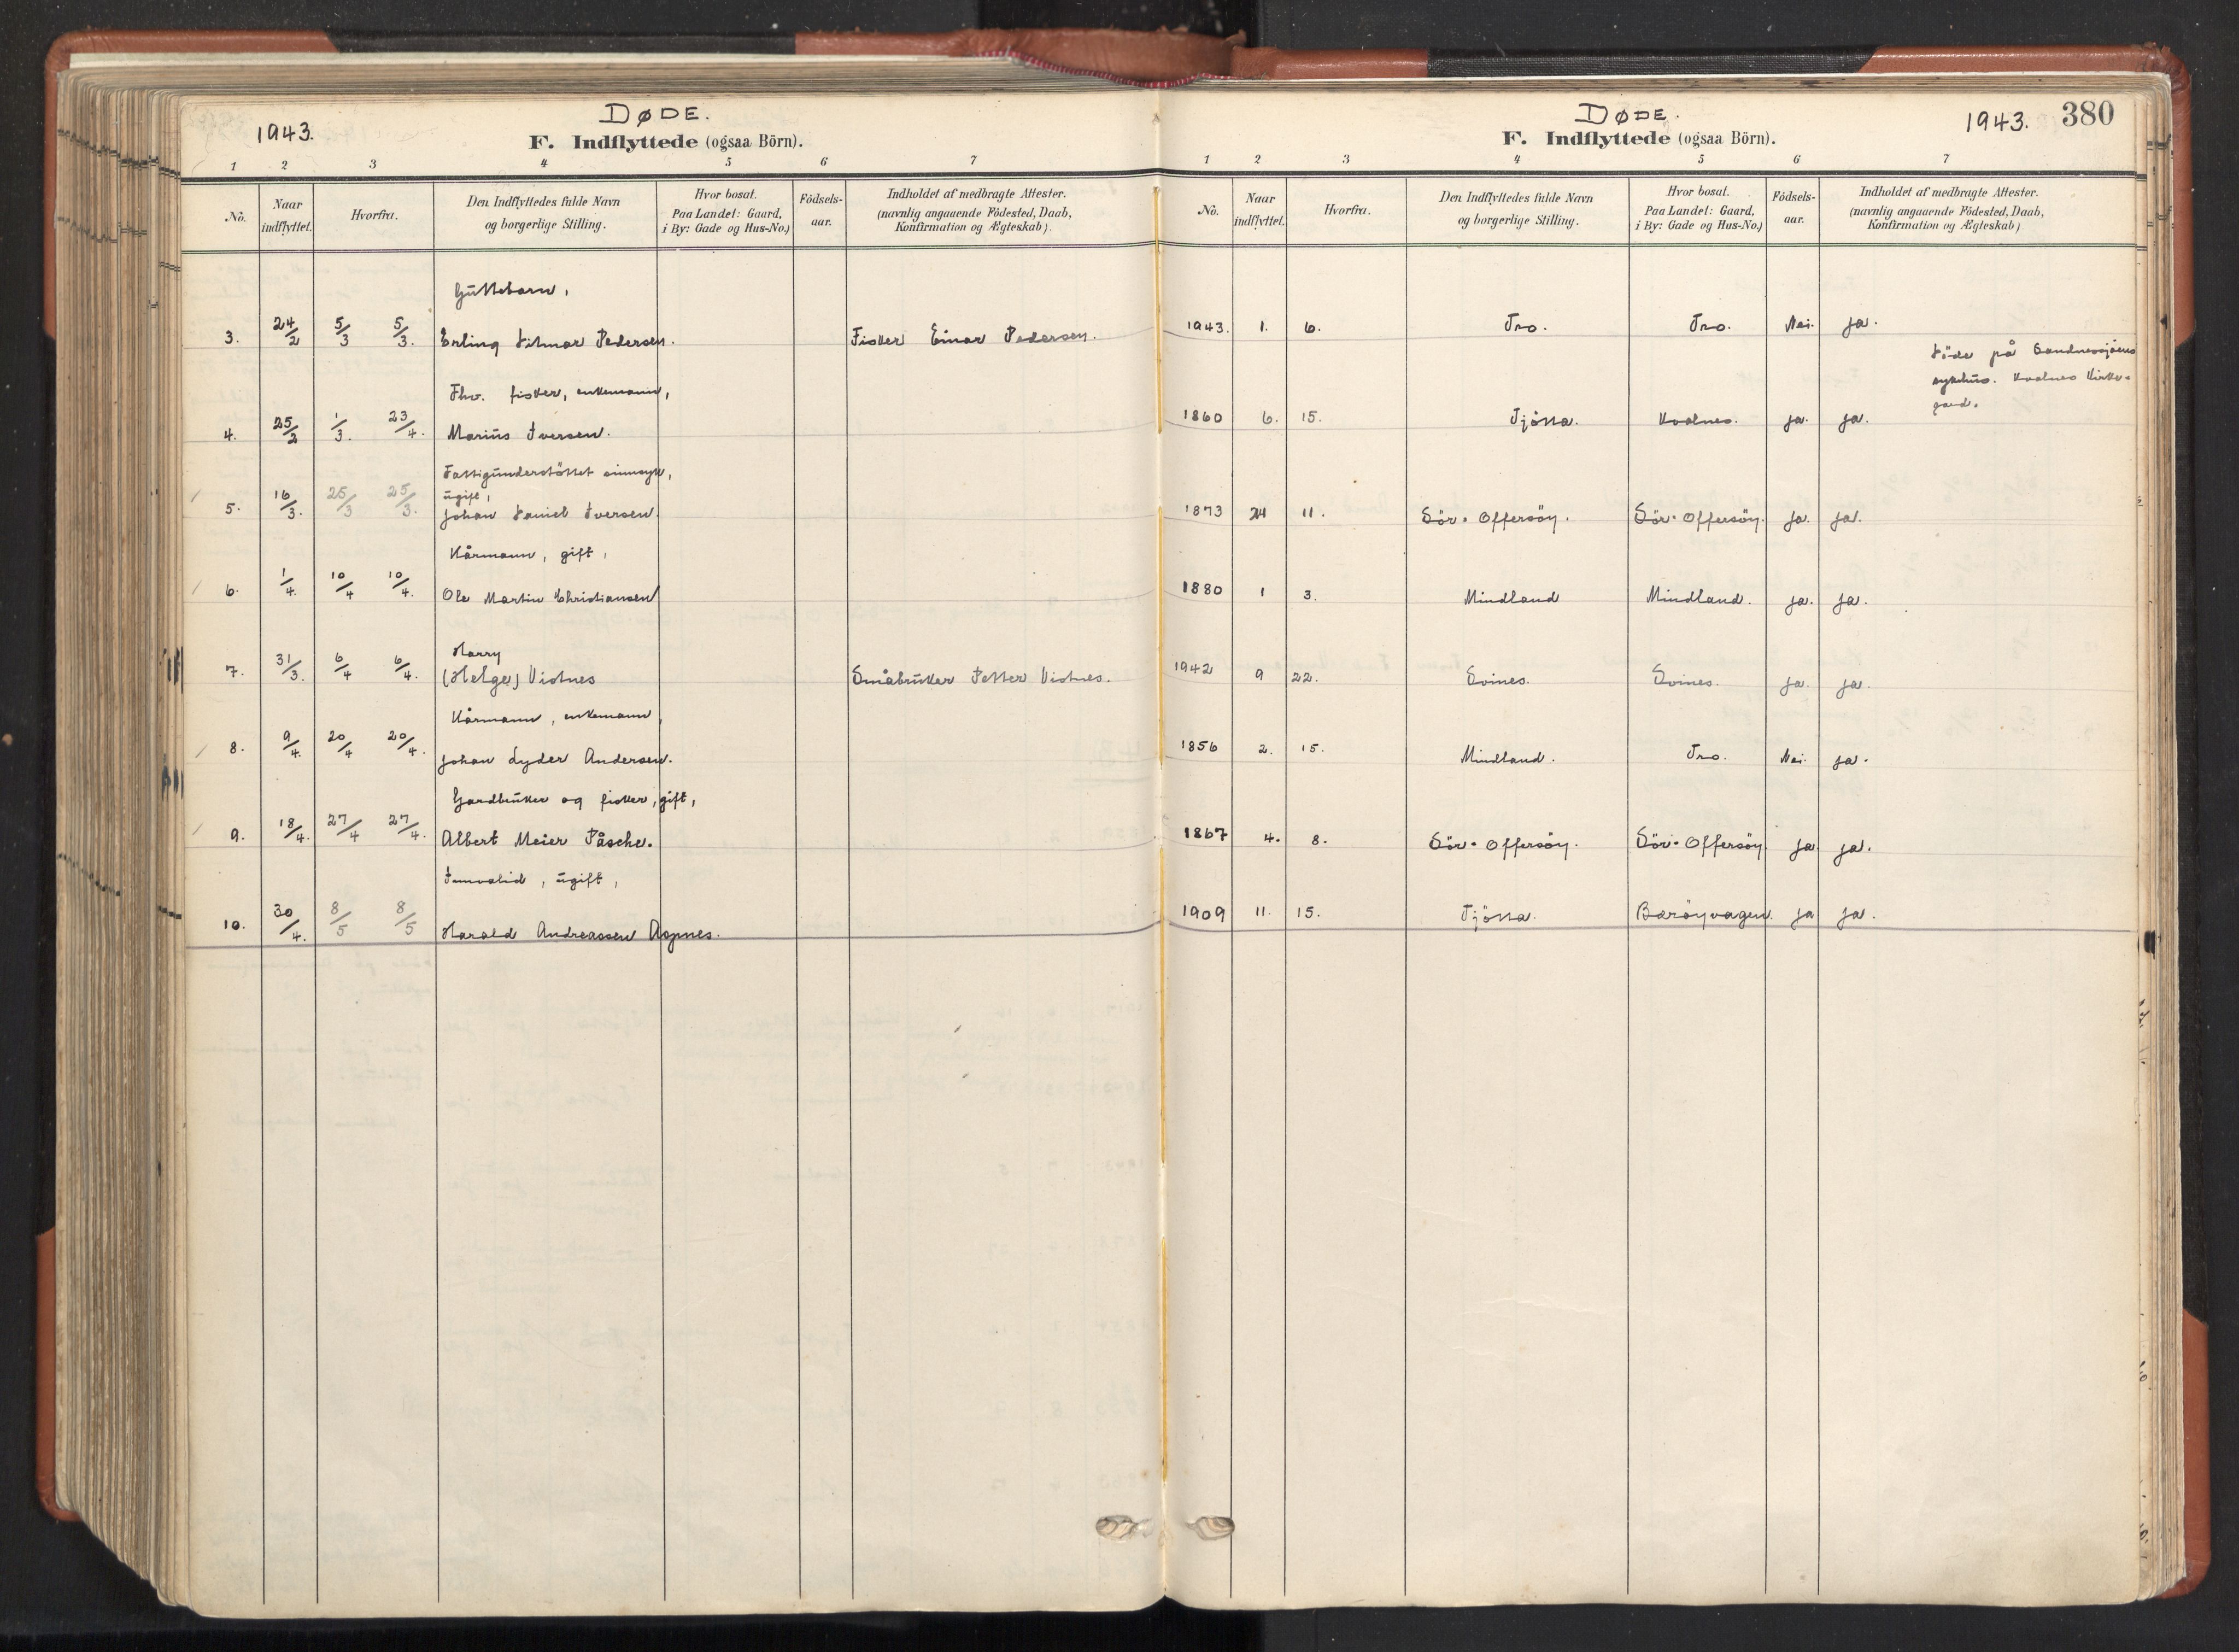 1943.
DØDE.
F. Indflyttede (ogsaa Börn).
1 2 3 4 5 6 7
No.
Naar indflyttet.
Hvorfra.
Den Indflyttedes fulde Navn og borgerlige Stilling.
Hvor bosat. Paa Landet: Gaard, i By: Gade og Hus-No.)
Födsels-aar.
Indholdet af medbragte Attester. (navnlig angaaende Födested, Daab, Konfirmation og Ægteskab).
Guttebarn,
3. 24/2 5/3 5/3. Erling Hilmar Pedersen. Fisker Einar Pedersen.
Fhv. fisker, enkemann,
4. 25/2 1/3. 23/4. Marius Iversen.
Fattigunderstöttet sinnsyk,
ugift,
5. 16/3. 25/3 25/3. Johan Daniel Iversen.
Kårmann, gift,
6. 1/4. 10/4 10/4. Ole Martin Christiansen
Harry
7. 31/3. 6/4 6/4. (Helge) Vistnes Småbruker Petter Vistnes.
Kårmann, enkemann,
8. 9/4. 20/4 20/4. Johan Lyder Andersen.
Gardbruker og fisker, gift,
9. 18/4. 27/4 27/4. Albert Meier Påsche.
Innvalid, ugift,
10. 30/4. 8/5 8/5 Harald Andreassen Aspnes.
DØDE.
1943. 380
F. Indflyttede (ogsaa Börn).
1 2 3 4 5 6 7
No.
Naar indflyttet.
Hvorfra.
Den Indflyttedes fulde Navn og borgerlige Stilling.
Hvor bosat. Paa Landet: Gaard, i By: Gade og Hus-No.)
Födsels-aar.
Indholdet af medbragte Attester. (navnlig angaaende Födested, Daab, Konfirmation og Ægteskab)
1943. 1. 6. Tro. Tro. Nei. ja.
Döde på Sandnessjöens
sykehus. Kvalnes Kirke-
gard.
1860 6. 15. Tjötta. Kvalnes. ja. ja.
1873 24 11. Sör-Offersöy. Sör-Offersöy. ja. ja.
1880 1 3. Mindland Mindland. ja. ja.
1942 9 22. Svines. Svines. ja. ja.
1856 2. 15. Mindland. Tro. Nei. ja.
1867 4. 8. Sör-Offersöy. Sör-Offersöy ja ja.
1909 11. 15. Tjötta. Barøyvagen. ja ja.